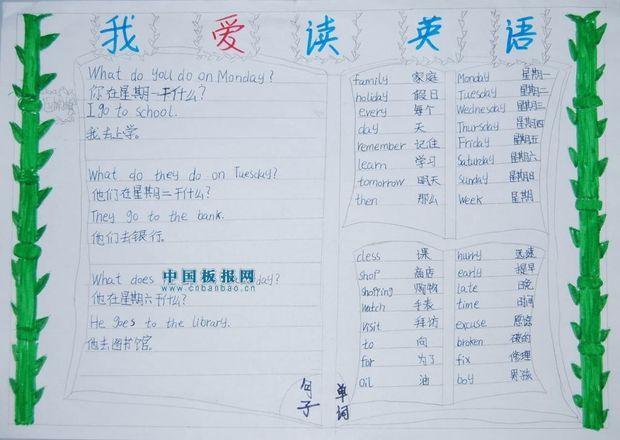 我爱读英语
What do you do on Monday?
你在星期一干什么?
I go to school.
我去上学。
What do they do on Tuesday?
他们在星期二干什么?
They go to the bank.
他们去银行。
What does
day?
中国板报网
www.cnbanbao.cn
他在星期六干什么?
He goes to the library.
他去图书馆。
family 家庭
holiday 假日
every 每个
day 天
remember 记住
learn 学习
tomorrow 明天
then 那么
Monday 星期一
Tuesday 星期二
Wednesday 星期三
Thursday 星期四
Friday 星期五
Saturday 星期六
Sunday 星期日
Week 星期
class 课
shop 商店
shopping 购物
watch 手表
visit 拜访
to 向
for 为了
oil 油
hurry
early 提早
late 晚
time 时间
excuse 原谅
broken 破的
fix 修理
boy 男孩
句子
单词